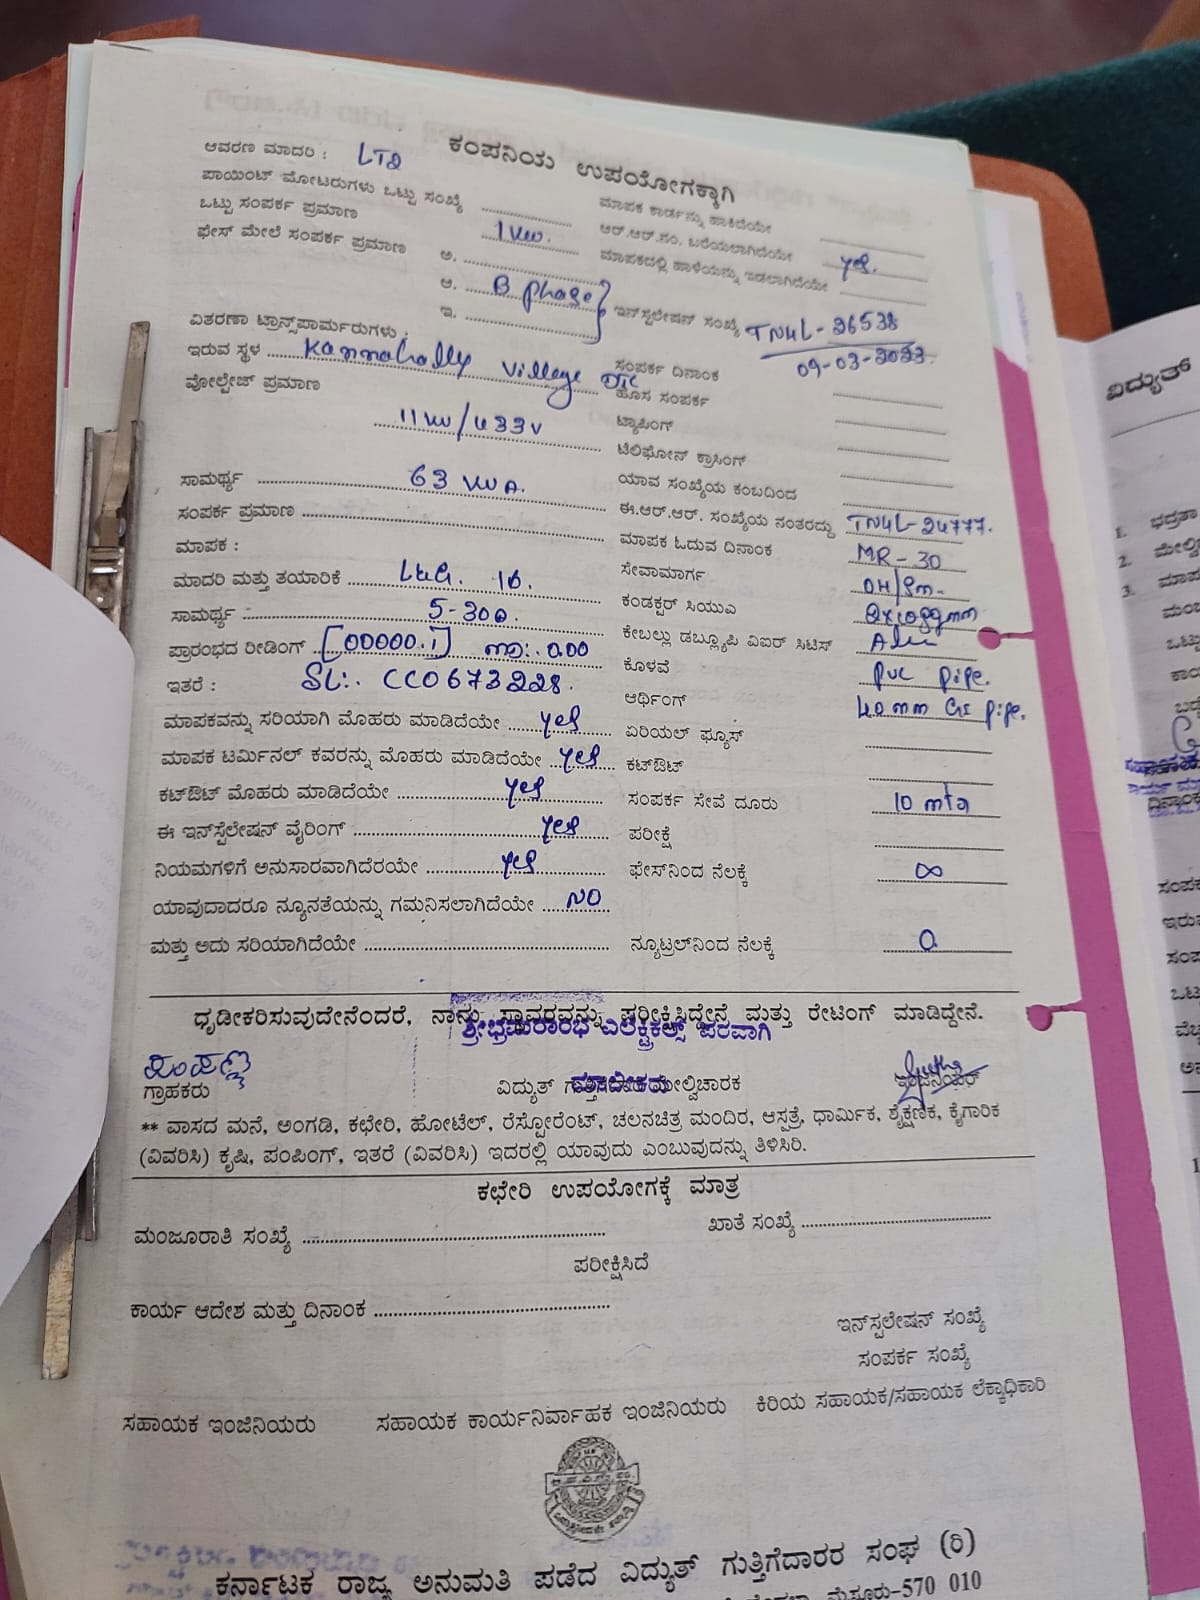 ಕಂಪನಿಯ ಉಪಯೋಗಕ್ಕಾಗಿ
ಆವರಣ ಮಾದರಿ : LT2
ಪಾಯಿಂಟ್ ಮೋಟರುಗಳು ಒಟ್ಟು ಸಂಖ್ಯೆ
ಒಟ್ಟು ಸಂಪರ್ಕ ಪ್ರಮಾಣ 1kw.
ಫೇಸ್ ಮೇಲೆ ಸಂಪರ್ಕ ಪ್ರಮಾಣ ಅ.
ಆ. B phase
ಇ.
ವಿತರಣಾ ಟ್ರಾನ್ಸ್‌ಪಾರ್ಮರುಗಳು :
ಇರುವ ಸ್ಥಳ Kannahally Village DTC
ವೋಲ್ಟೇಜ್ ಪ್ರಮಾಣ
11kv/433v
ಸಾಮರ್ಥ್ಯ 63 kVA.
ಸಂಪರ್ಕ ಪ್ರಮಾಣ
ಮಾಪಕ :
ಮಾದರಿ ಮತ್ತು ತಯಾರಿಕೆ L&G. 10.
ಸಾಮರ್ಥ್ಯ 5-30A
ಪ್ರಾರಂಭದ ರೀಡಿಂಗ್ [00000.1] 0.00
ಇತರೆ : SL:. CC0673228.
ಮಾಪಕವನ್ನು ಸರಿಯಾಗಿ ಮೊಹರು ಮಾಡಿದೆಯೇ yes
ಮಾಪಕ ಟರ್ಮಿನಲ್ ಕವರನ್ನು ಮೊಹರು ಮಾಡಿದೆಯೇ yes
ಕಟ್‌ಔಟ್ ಮೊಹರು ಮಾಡಿದೆಯೇ yes
ಈ ಇನ್‌ಸ್ಟೆಲೇಷನ್ ವೈರಿಂಗ್ yes
ನಿಯಮಗಳಿಗೆ ಅನುಸಾರವಾಗಿದೆರಯೇ yes
ಯಾವುದಾದರೂ ನ್ಯೂನತೆಯನ್ನು ಗಮನಿಸಲಾಗಿದೆಯೇ NO
ಮತ್ತು ಅದು ಸರಿಯಾಗಿದೆಯೇ
ಮಾಪಕ ಕಾರ್ಡನ್ನು ಹಾಕಿದೆಯೇ
ಆರ್.ಆರ್.ನಂ. ಬರೆಯಲಾಗಿದೆಯೇ yes.
ಮಾಪಕದಲ್ಲಿ ಹಾಳೆಯನ್ನು ಇಡಲಾಗಿದೆಯೇ
ಇನ್‌ಸ್ಟಲೇಷನ್ ಸಂಖ್ಯೆ TN4L-26538
ಸಂಪರ್ಕ ದಿನಾಂಕ 09-03-2023.
ಹೊಸ ಸಂಪರ್ಕ
ಟ್ಯಾಪಿಂಗ್
ಟೆಲಿಫೋನ್ ಕ್ರಾಸಿಂಗ್
ಯಾವ ಸಂಖ್ಯೆಯ ಕಂಬದಿಂದ
ಈ.ಆರ್.ಆರ್. ಸಂಖ್ಯೆಯ ನಂತರದ್ದು TN4L-24777.
ಮಾಪಕ ಓದುವ ದಿನಾಂಕ MR-30
ಸೇವಾಮಾರ್ಗ OH/Sm.
ಕಂಡಕ್ಟರ್ ಸಿಯುಎ
ಕೇಬಲ್ಲು ಡಬ್ಲ್ಯೂಪಿ ವಿಐರ್ ಸಿಟಿಸ್ Alu
ಕೊಳವೆ PVC pipe.
ಆರ್ಥಿಂಗ್ 40mm GI pipe.
ಏರಿಯಲ್ ಫ್ಯೂಸ್
ಕಟ್‌ಔಟ್
ಸಂಪರ್ಕ ಸೇವೆ ದೂರು 10 mtr
ಪರೀಕ್ಷೆ
ಫೇಸ್‌ನಿಂದ ನೆಲಕ್ಕೆ ∞
ನ್ಯೂಟ್ರಲ್‌ನಿಂದ ನೆಲಕ್ಕೆ 0
ಧೃಡೀಕರಿಸುವುದೇನೆಂದರೆ, ನಾನು ಸ್ಥಾವರವನ್ನು ಪರೀಕ್ಷಿಸಿದ್ದೇನೆ ಮತ್ತು ರೇಟಿಂಗ್ ಮಾಡಿದ್ದೇನೆ.
ಶ್ರೀಭ್ರಮರಾಂಭ ಎಲೆಕ್ಟ್ರಿಕಲ್ಸ್ ಪರವಾಗಿ
ಪಂಪಣ್ಣ
ಗ್ರಾಹಕರು ವಿದ್ಯುತ್ ಮೇಲ್ವಿಚಾರಕ ಇಂಜಿನಿಯರ್
ಮಾಲೀಕರು
** ವಾಸದ ಮನೆ, ಅಂಗಡಿ, ಕಛೇರಿ, ಹೋಟೆಲ್, ರೆಸ್ಟೋರೆಂಟ್, ಚಲನಚಿತ್ರ ಮಂದಿರ, ಆಸ್ಪತ್ರೆ, ಧಾರ್ಮಿಕ, ಶೈಕ್ಷಣಿಕ, ಕೈಗಾರಿಕ
(ವಿವರಿಸಿ) ಕೃಷಿ, ಪಂಪಿಂಗ್, ಇತರೆ (ವಿವರಿಸಿ) ಇದರಲ್ಲಿ ಯಾವುದು ಎಂಬುವುದನ್ನು ತಿಳಿಸಿರಿ.
ಕಛೇರಿ ಉಪಯೋಗಕ್ಕೆ ಮಾತ್ರ
ಮಂಜೂರಾತಿ ಸಂಖ್ಯೆ ಖಾತೆ ಸಂಖ್ಯೆ
ಪರೀಕ್ಷಿಸಿದೆ
ಕಾರ್ಯ ಆದೇಶ ಮತ್ತು ದಿನಾಂಕ
ಇನ್‌ಸ್ಟಲೇಷನ್ ಸಂಖ್ಯೆ
ಸಂಪರ್ಕ ಸಂಖ್ಯೆ
ಸಹಾಯಕ ಇಂಜಿನಿಯರು ಸಹಾಯಕ ಕಾರ್ಯನಿರ್ವಾಹಕ ಇಂಜಿನಿಯರು ಕಿರಿಯ ಸಹಾಯಕ/ಸಹಾಯಕ ಲೆಕ್ಕಾಧಿಕಾರಿ
ಕರ್ನಾಟಕ ರಾಜ್ಯ ಅನುಮತಿ ಪಡೆದ ವಿದ್ಯುತ್ ಗುತ್ತಿಗೆದಾರರ ಸಂಘ (ರಿ)
ಮೈಸೂರು-570 010
ವಿದ್ಯುತ್
1. ಭದ್ರತಾ
2.
3.